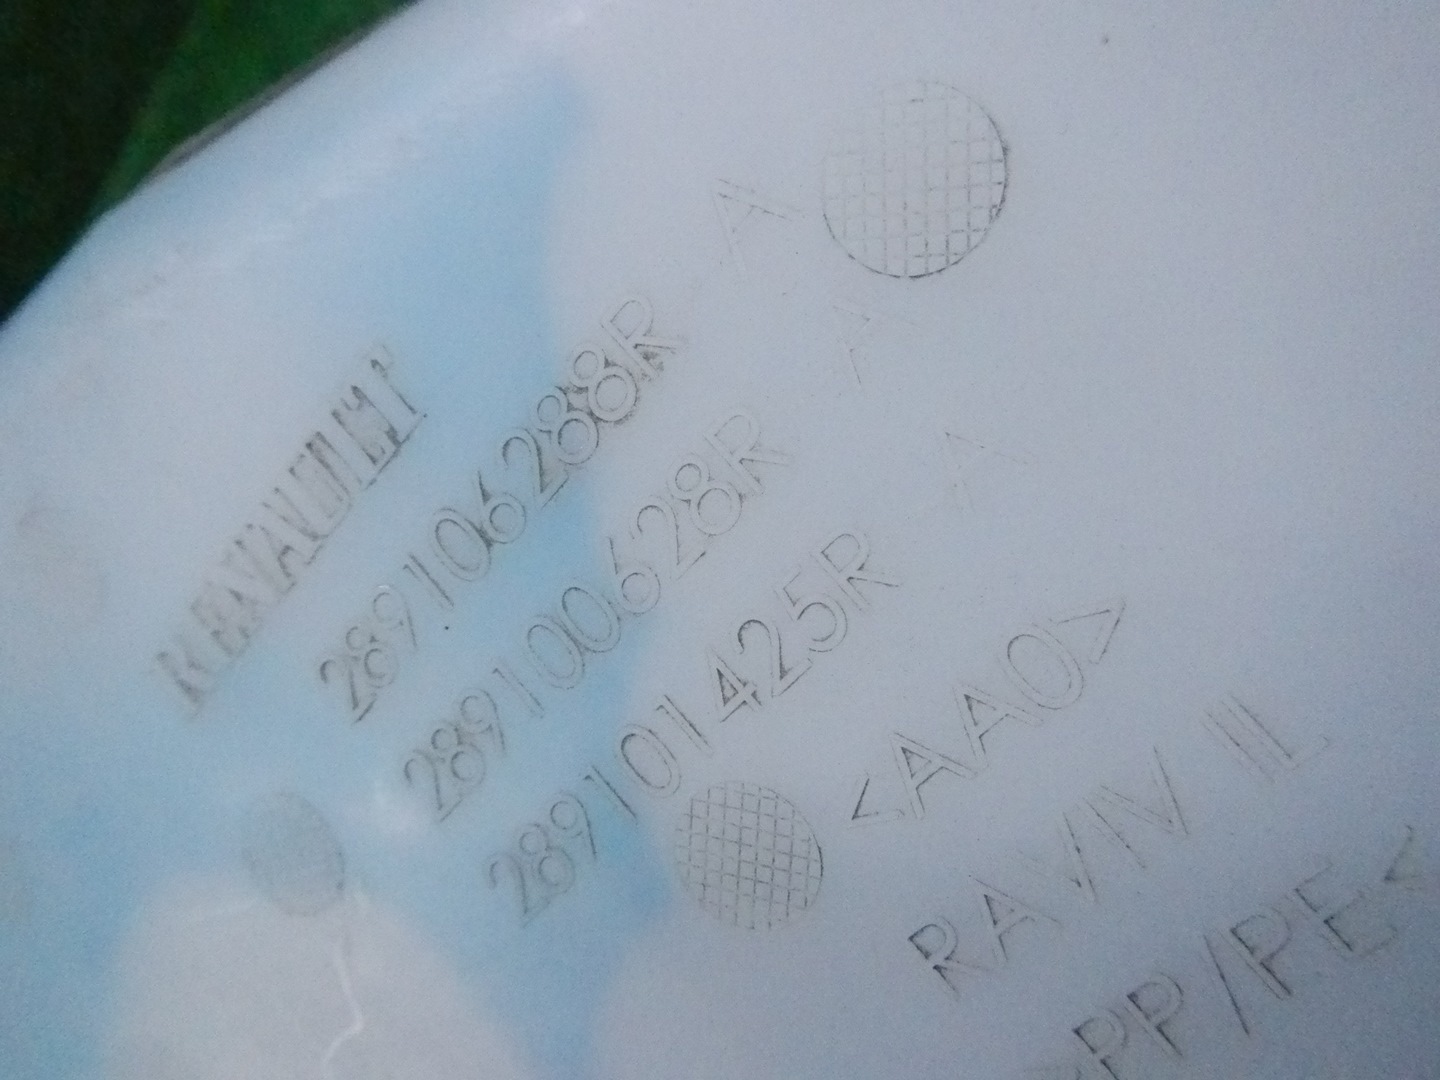 RENAULT
289106288R A
289100628R A
289101425R A
<AAO>
RAVIV IL
PP/PE<